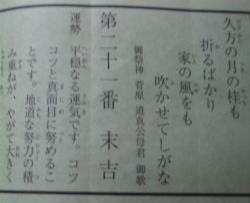 久方の月の桂も
折るばかり
家の風をも
吹かせてしがな
御祭神 菅原道真公母君 御歌
第二十一番 末吉
運勢 平穏なる運気です。コツ
コツと真面目に努めるこ
とです。地道な努力の積
み重ねが、やがて大きく